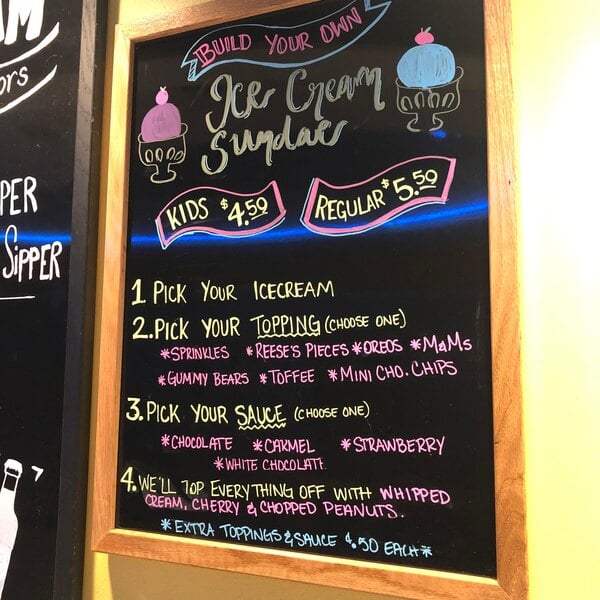 BUILD YOUR OWN
Ice Cream
Sundaes
KIDS $4.50
REGULAR $5.50
1 PICK YOUR ICECREAM
2. PICK YOUR TOPPING (CHOOSE ONE)
*SPRINKLES *REESE'S PIECES *OREOS *M&Ms
*GUMMY BEARS *TOFFEE *MINI CHO. CHIPS
3. PICK YOUR SAUCE (CHOOSE ONE)
*CHOCOLATE *CARMEL *STRAWBERRY
*WHITE CHOCOLATE
4. WE'LL TOP EVERYTHING OFF WITH WHIPPED
CREAM, CHERRY & CHOPPED PEANUTS.
*EXTRA TOPPINGS & SAUCE $.50 EACH*
SIPPER